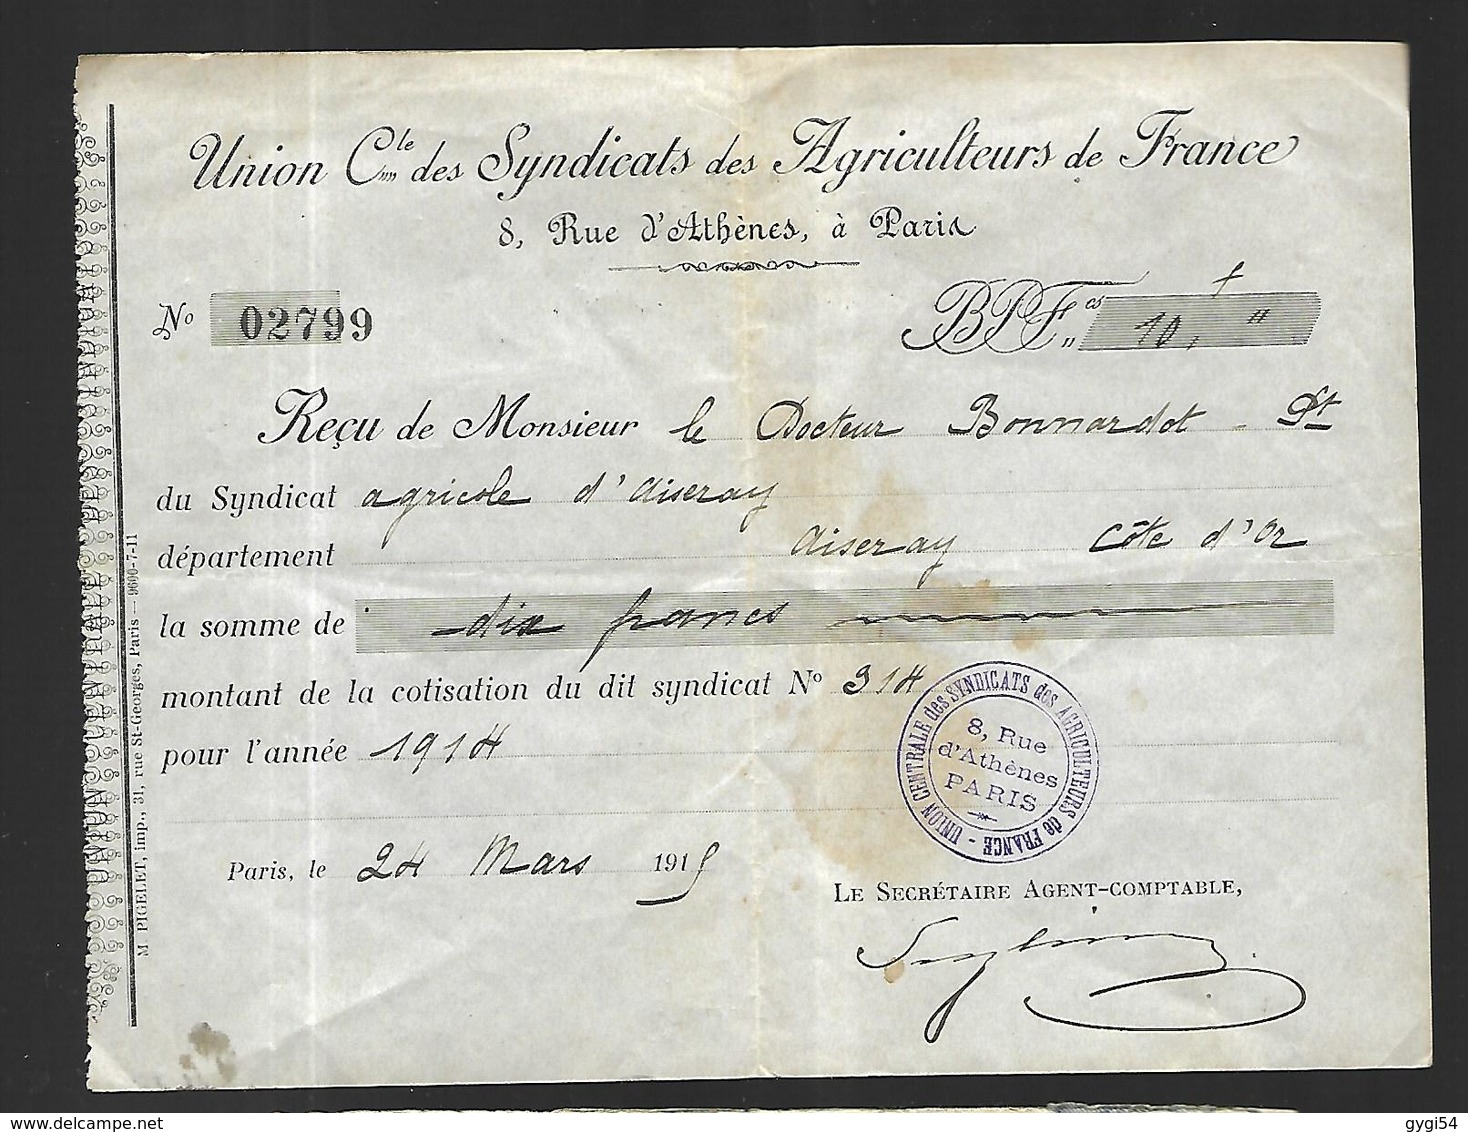 Union Cle des Syndicats des Agriculteurs de France
8, Rue d'Athènes, à Paris
No 02799
BPFcs 10, f "
Reçu de Monsieur le Docteur Bonnardot - Pt
du Syndicat agricole d'Aiseray
département Aiseray Côte d'Or
la somme de dix francs
montant de la cotisation du dit syndicat No 314
pour l'année 1914
UNION CENTRALE des SYNDICATS des AGRICULTEURS de FRANCE -
8, Rue
d'Athènes
PARIS
Paris, le 24 Mars 1915
LE SECRÉTAIRE AGENT-COMPTABLE,
M. PIGELET, Imp., 31, rue St-Georges, Paris — 9600-7-11
gygi54